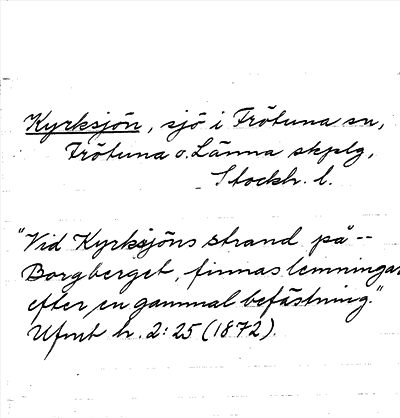 Kyrksjön, sjö i Frötuna sn,
Frötuna o. Länna skplg,
Stockh. l.
"Vid Kyrksjöns strand på --
Borgberget, finnas lemningar
efter en gammal befästning."
Ufmt h. 2: 25 (1872).